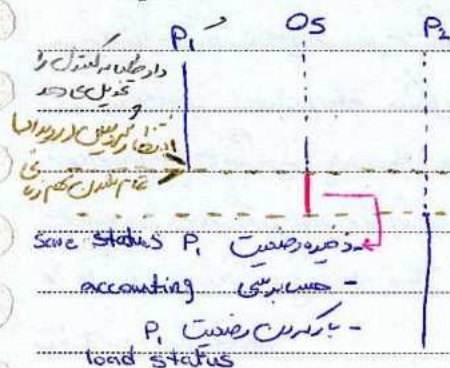 P₁ OS P₂
داوطلبانه کنترل را
تحویل می دهد
تمام شدن سهم زمانی
save status P₁ ذخیره وضعیت -
accounting حسابرسی -
P₁ بارکردن وضعیت -
load status